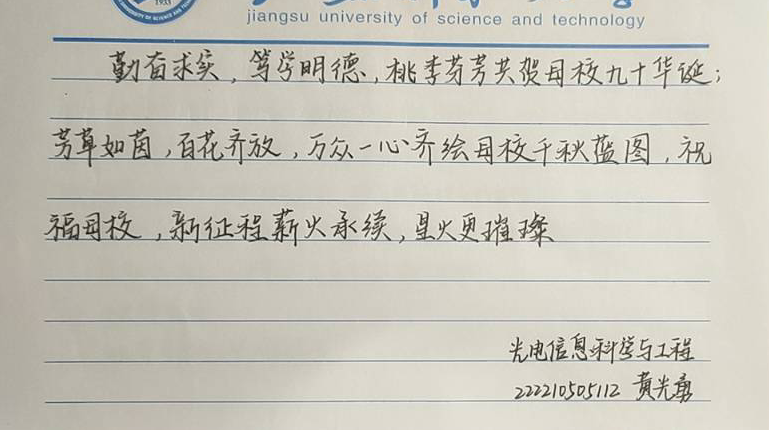 jiangsu university of science and technology
勤奋求实，笃学明德，桃李芬芳共贺母校九十华诞；
芳草如茵，百花齐放，万众一心齐绘母校千秋蓝图，祝
福母校，新征程薪火承续，星火更璀璨
光电信息科学与工程
222210505112 黄光勇